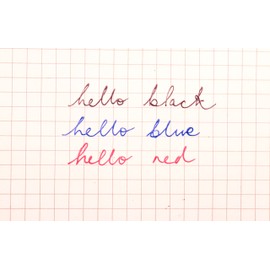 hello black
hello blue
hello red